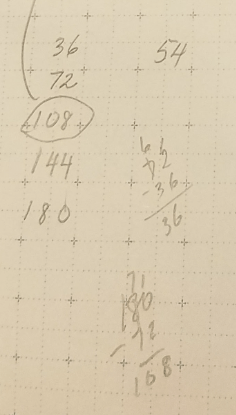 36
72
108
144
180
54
6
72
-36
36
71
180
- 72
108